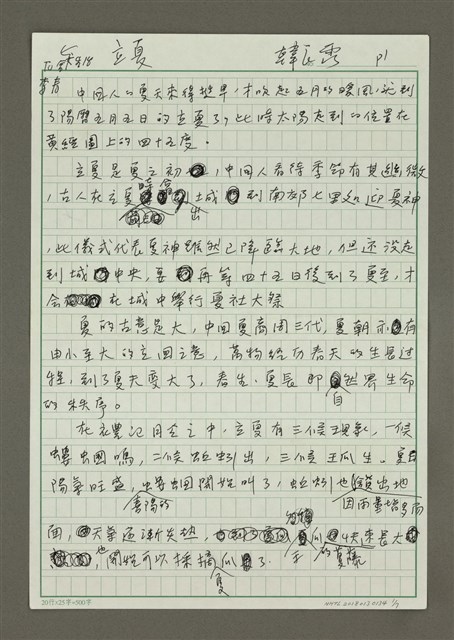 立夏 韓良露 P1
中國人的夏天來得挺早，才吹起五月的暖風，就到
了陽曆五月五日的立夏了，此時太陽走到的位置在
黃經圖上的四十五度。
立夏是夏之初，中國人看待季節有其細微
，古人在立夏時會出城到南郊七里處迎夏神
，此儀式代表夏神雖然已降臨大地，但還沒走
到城中央，要再等四十五日後到了夏至，才
會在城中舉行夏社大祭
夏的古意是大，中國夏商周三代，夏朝亦有
由小至大的立國之意，萬物經历春天的生長过
程，到了夏天变大了，春生、夏長即自然界生命
的秩序。
在礼記月令之中，立夏有三候現象，一候
螻蟈鳴，二候蚯蚓出，三候王瓜生。夏日
陽氣旺盛，喜陽的螻蟈開始叫了，蚯蚓也因雨量增多而鑽出地
面，天氣逐漸炎熱，瓜的蔓藤快速長大
，也開始可以採摘夏瓜了。
20行×25字=500字